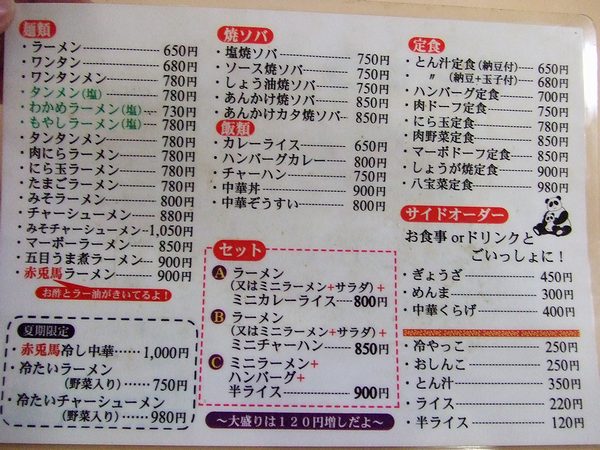 麺類
・ラーメン 650円
・ワンタン 680円
・ワンタンメン 780円
・タンメン(塩) 780円
・わかめラーメン(塩) 730円
・もやしラーメン(塩) 780円
・タンタンメン 780円
・肉にらラーメン 780円
・にら玉ラーメン 780円
・たまごラーメン 780円
・みそラーメン 800円
・チャーシューメン 880円
・みそチャーシューメン 1,050円
・マーボーラーメン 850円
・五目うま煮ラーメン 900円
・赤兎馬ラーメン 900円
お酢とラー油がきいてるよ!
夏期限定
・赤兎馬冷し中華……1,000円
・冷たいラーメン
(野菜入り)……750円
・冷たいチャーシューメン
(野菜入り)……980円
焼ソバ
・塩焼ソバ 750円
・ソース焼ソバ 750円
・しょう油焼ソバ 750円
・あんかけ焼ソバ 850円
・あんかけカタ焼ソバ 850円
飯類
・カレーライス 650円
・ハンバーグカレー 800円
・チャーハン 750円
・中華丼 900円
・中華ぞうすい 800円
セット
A ラーメン
(又はミニラーメン+サラダ)+
ミニカレーライス 800円
B ラーメン
(又はミニラーメン+サラダ)+
ミニチャーハン 850円
C ミニラーメン+
ハンバーグ+
半ライス 900円
〜大盛りは120円増しだよ〜
定食
・とん汁定食(納豆付) 650円
・ 〃 (納豆+玉子付) 680円
・ハンバーグ定食 700円
・肉ドーフ定食 750円
・にら玉定食 850円
・肉野菜定食 850円
・マーボドーフ定食 850円
・しょうが焼定食 900円
・八宝菜定食 980円
サイドオーダー
お食事 orドリンクと
ごいっしょに!
・ぎょうざ 450円
・めんま 300円
・中華くらげ 400円
・冷やっこ 250円
・おしんこ 250円
・とん汁 350円
・ライス 220円
・半ライス 120円